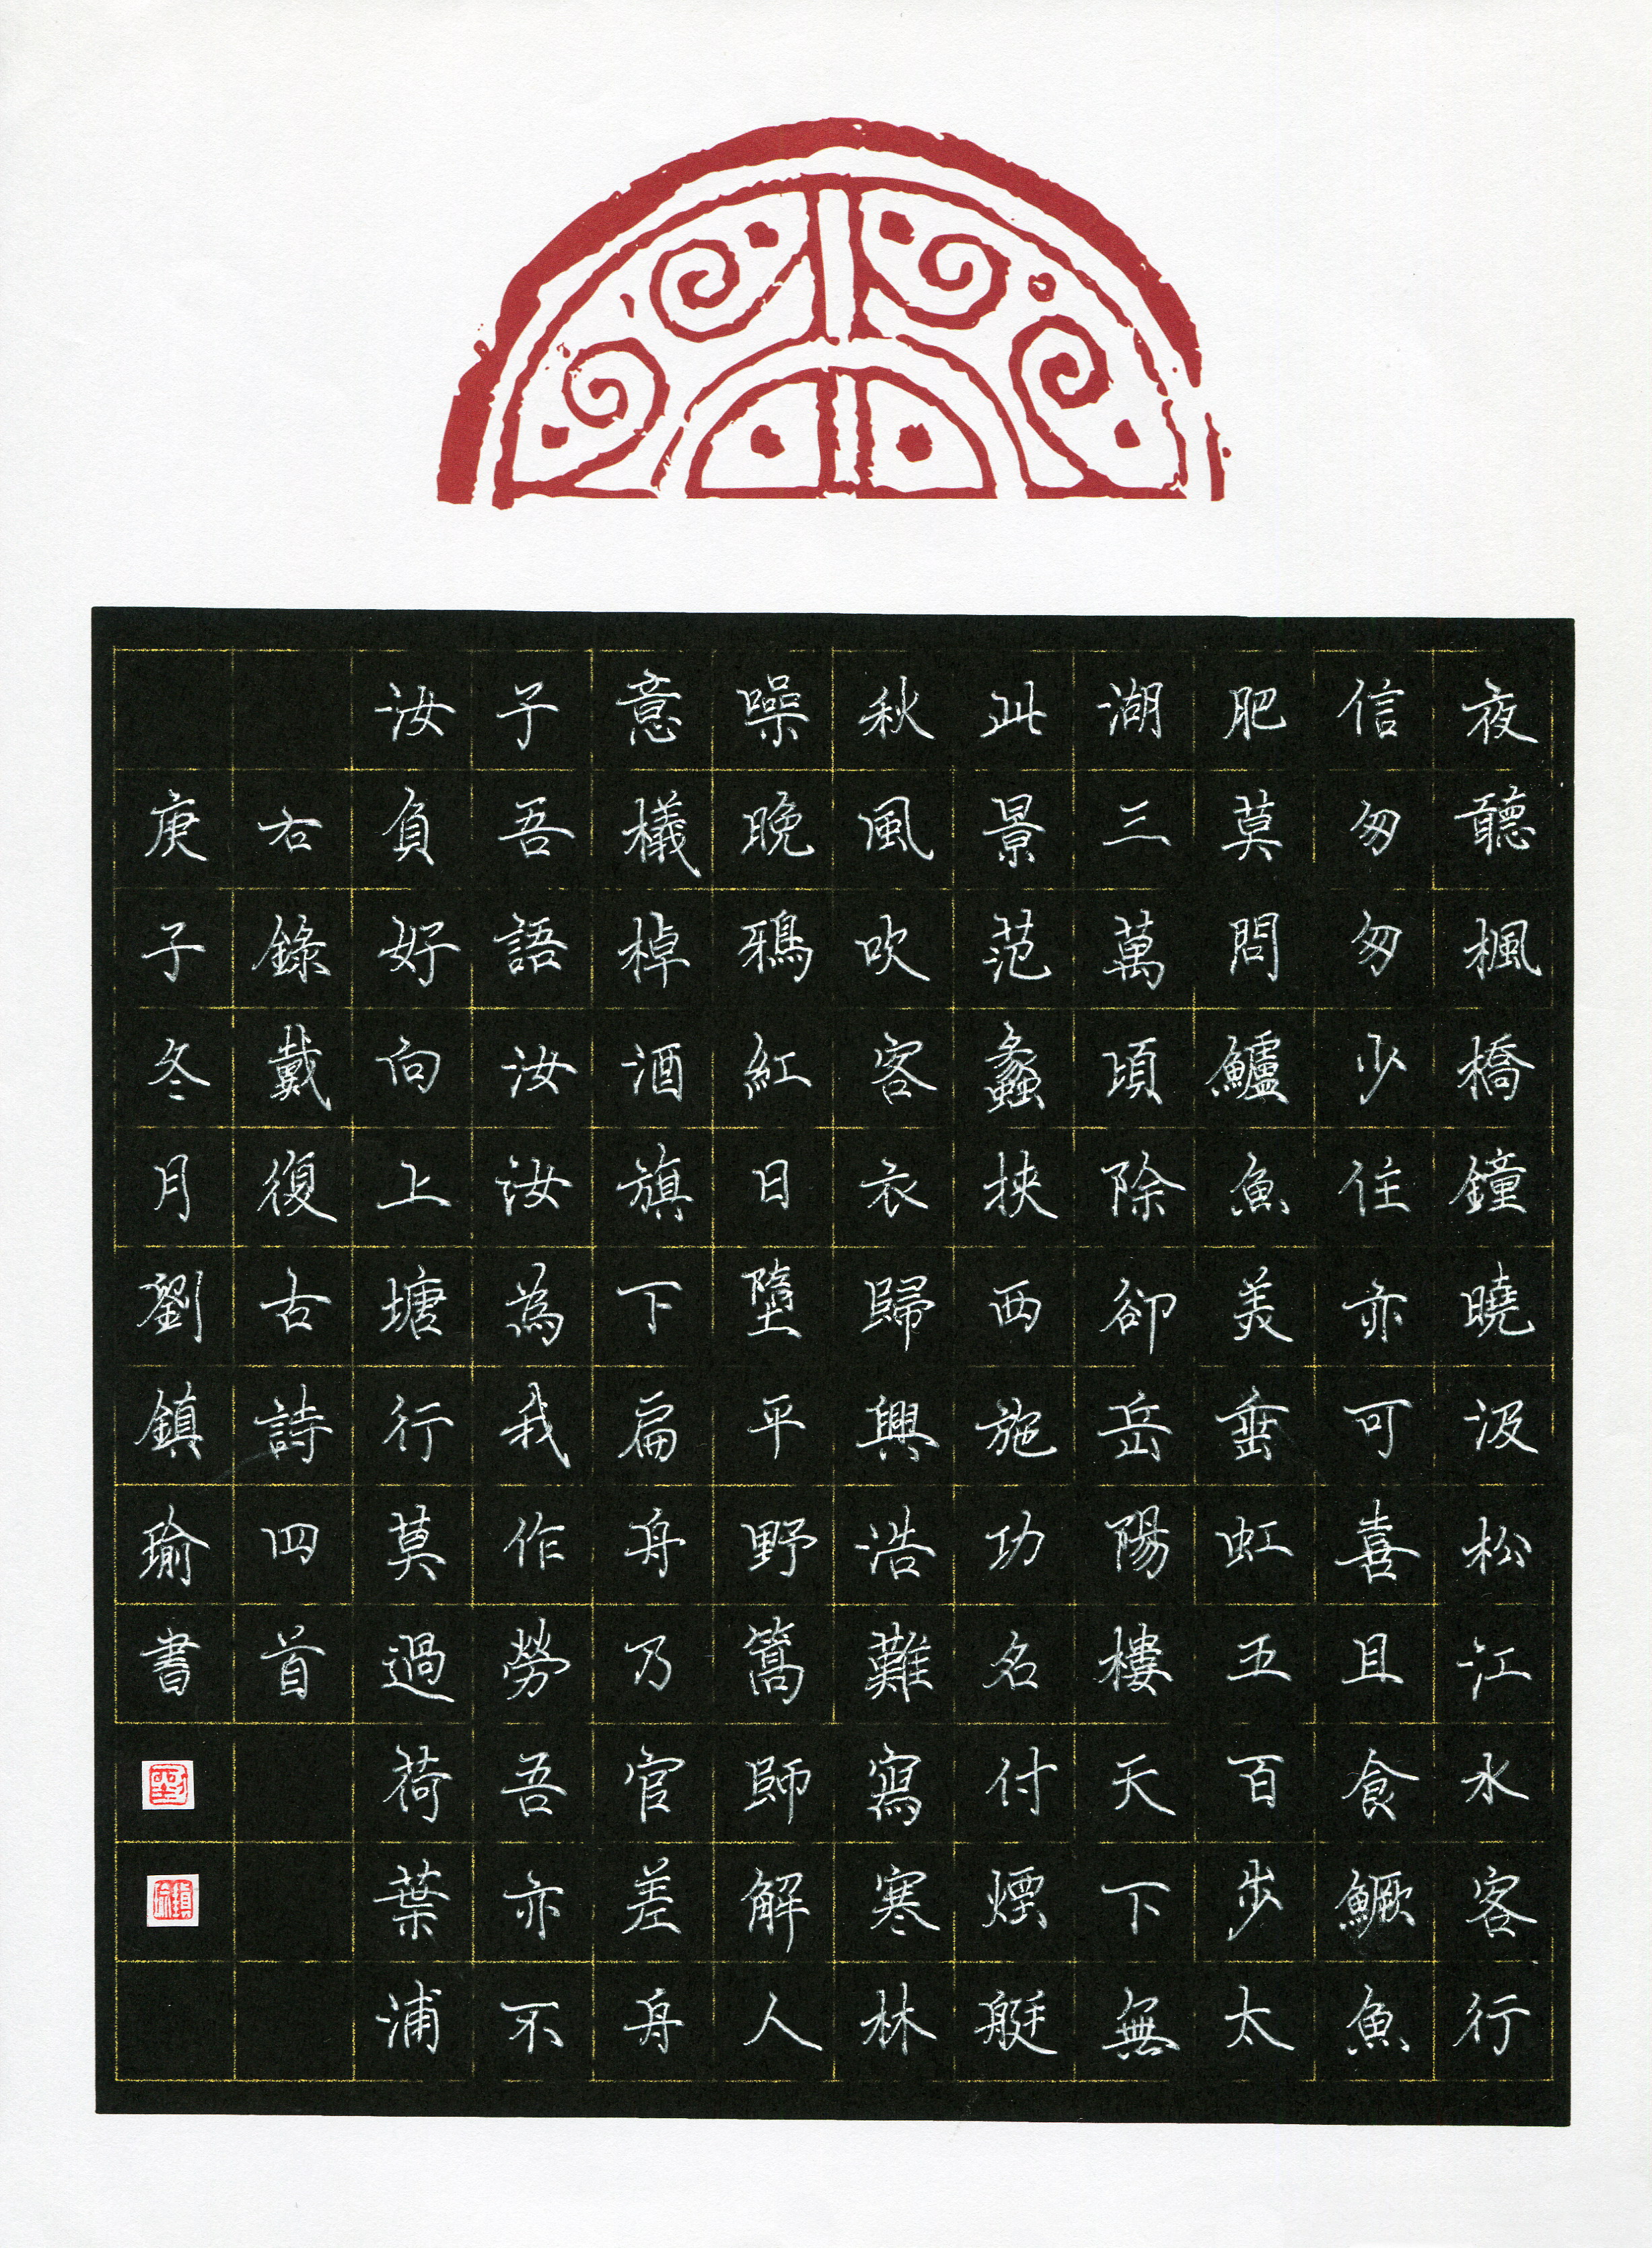 夜聽楓橋鐘曉汲松江水客行
信匆匆少住亦可喜且食鱖魚
肥莫問鱸魚美垂虹五百步太
湖三萬頃除卻岳陽樓天下無
此景范蠡挾西施功名付煙艇
秋風吹客衣歸興浩難寫寒林
噪晚鴉紅日墮平野篙師解人
意檥棹酒旗下扁舟乃官差舟
子吾語汝汝為我作勞吾亦不
汝負好向上塘行莫過荷葉浦
右錄戴復古詩四首
庚子冬月劉鎮瑜書
劉
鎮瑜